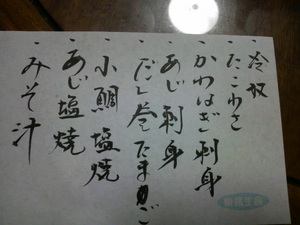 ・冷奴
・たこわさ
・かわはぎ刺身
・あじ刺身
・だし巻たまご
・小鯛塩焼
・あじ塩焼
・みそ汁